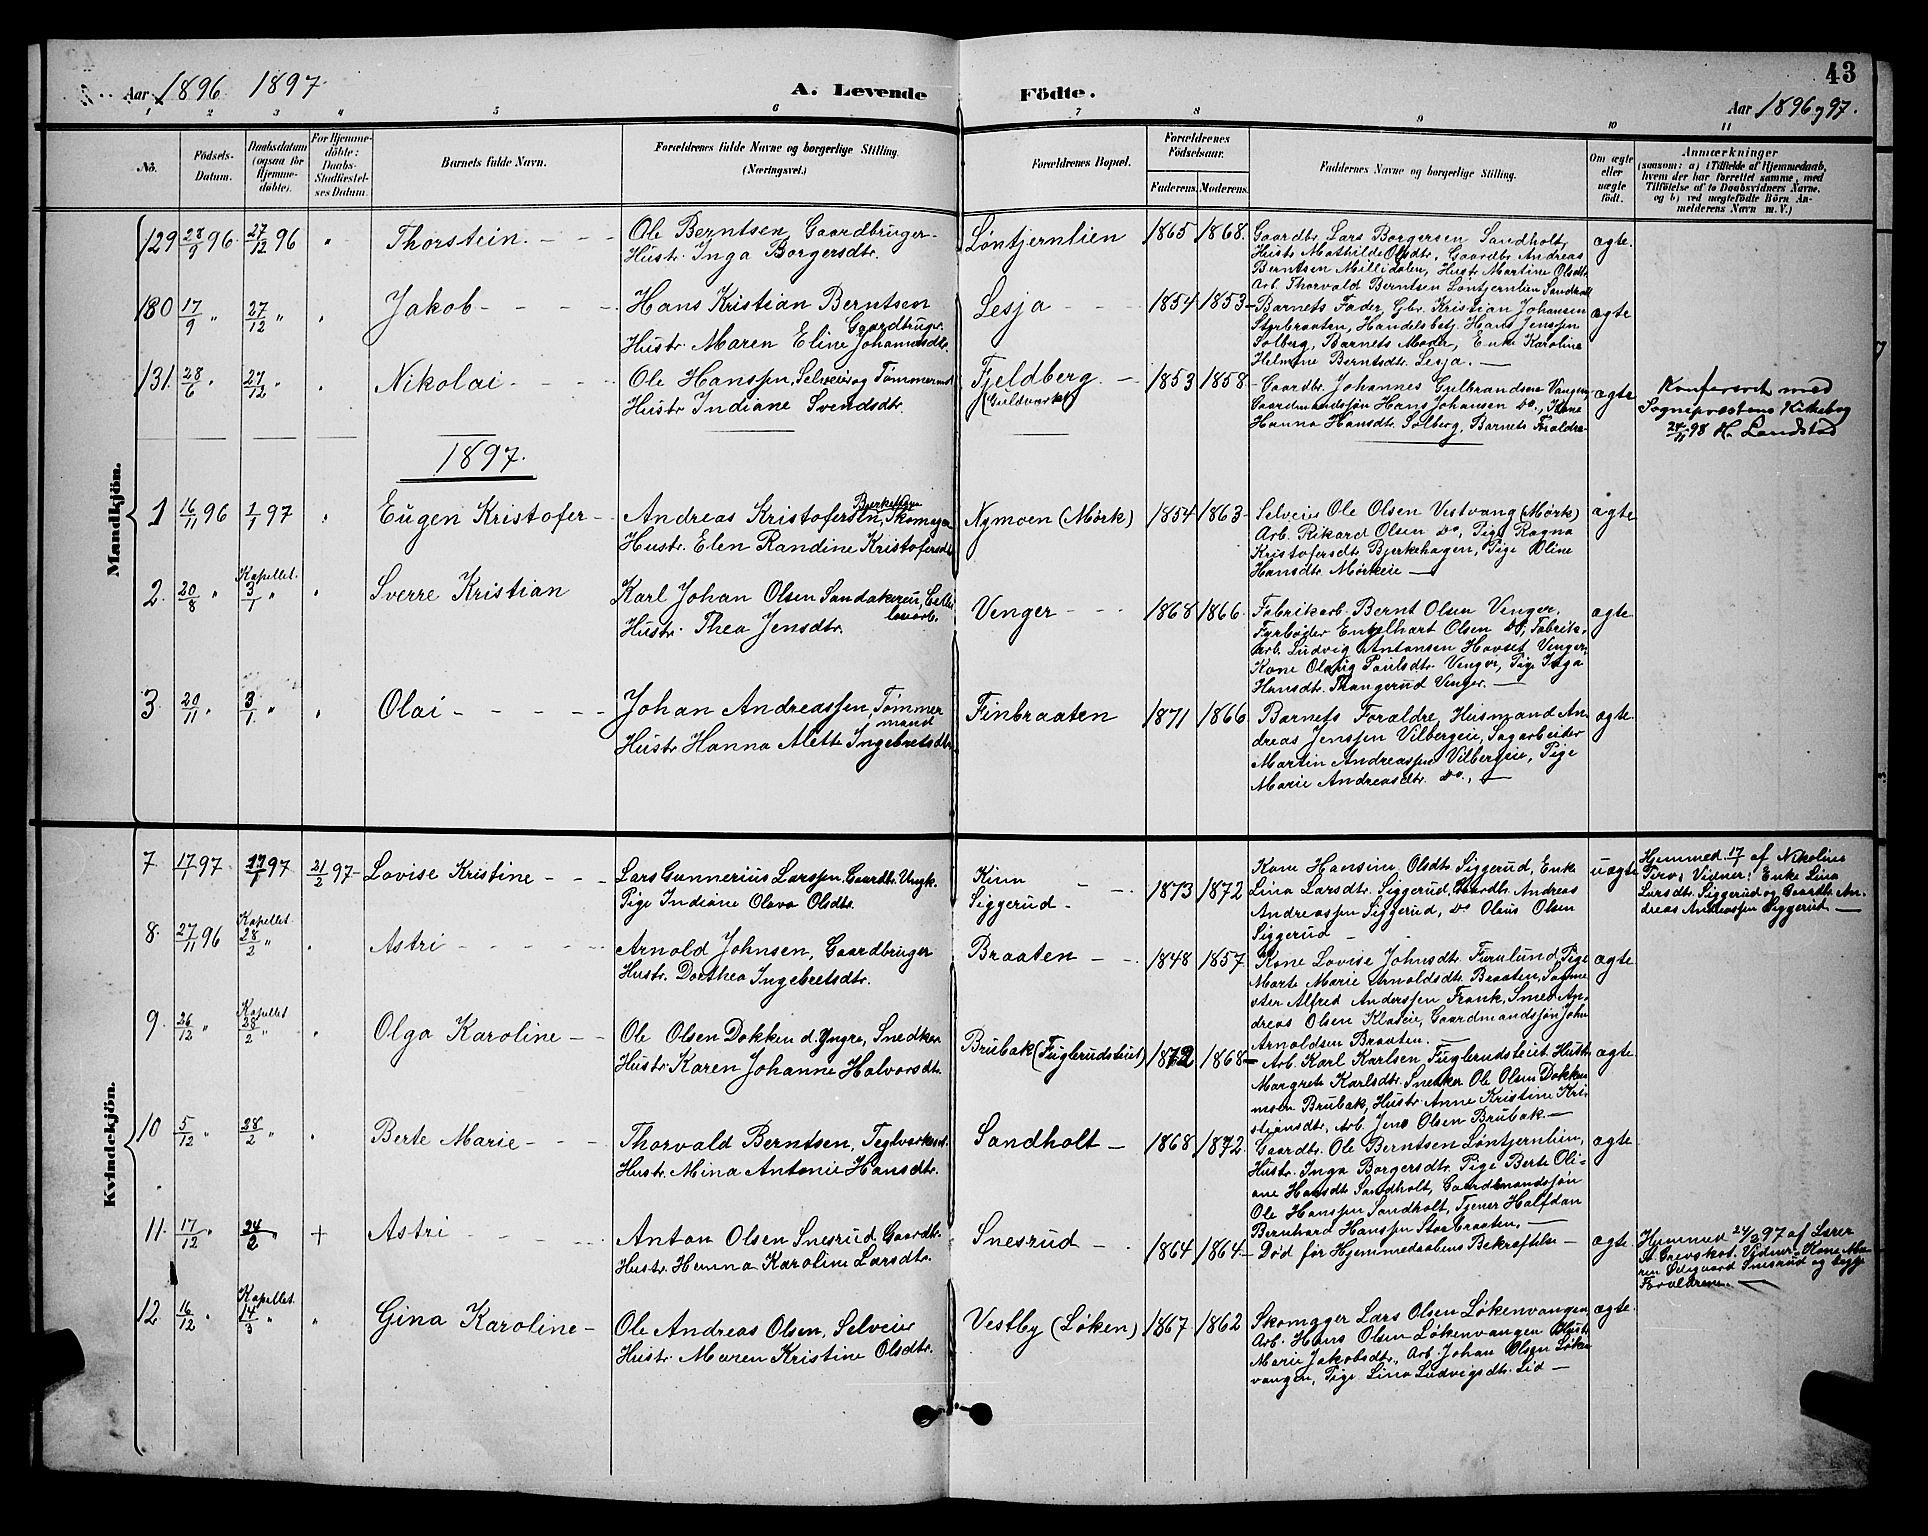 43
Aar 1896 1897
A. Levende Födte.
Aar 1896 og 97.
1 2 3 4 5 6 7 8 9 10 11
No.
Födsels-Datum.
Daabsdatum (ogsaa for Hjemme-döbte).
For Hjemme-döbte: Daabs-Stadfæstel-ses Datum.
Barnets fulde Navn.
Forældrenes fulde Navne og borgerlige Stilling. (Næringsvei.)
Forældrenes Bopæl.
Forældrenes Födselsaar.
Faderens. Moderens.
Faddernes Navne og borgerlige Stilling.
Om ægte eller uægte födt.
Anmærkninger
(saasom: a) i Tilfælde af Hjemmedaab,
hvem der har forrettet samme, med
Tilföielse af to Daabsvidners Navne,
og b) ved uægtefödte Börn An-
melderens Navn m. V.)
Mandkjön.
129 28/9 96 27/12 96 " Thorstein
Ole Berntsen, Gaardbruger
Hustr. Inga Borgersdtr.
Løntjernlien 1865 1868.
Gaardbr. Lars Borgersen Sandholt,
Hustr. Mathilde Olsdtr., Gaardbr. Andreas
Berntsen Millidalen, Hustr. Martine Olsdtr.
Arb. Thorvald Berntsen Løntjernlien Sandholt
ægte.
130 17/9 " 27/12 " " Jakob
Hans Kristian Berntsen
Gaardbruger.
Hustr. Maren Eline Johannesdtr.
Lesja 1854 1853
Barnets Fader, Gbr. Kristian Johansen
Styrbraaten, Handelsbetj. Hans Jenssen
Solberg, Barnets Moder, Enke Karoline
Helmine Berntsdtr. Lesja.
ægte
131. 28/6 " 27/12 " " Nikolai
Ole Hanssen, Selveier og Tømmermd
Hustr. Indiane Svendsdtr.
Fjeldberg (Guldværket) 1853 1858
Gaardbr. Johannes Gulbrandsen Vangen,
Gaardmandssøn Hans Johansen do., Kone
Hanna Hansdtr. Solberg, Barnets Forældre
ægte
Konfereret med
Sognepræstens Kirkebog
24/1 98 H. Landstad
1897.
1 16/11 96 1/1 97 " Eugen Kristofer
Andreas Kristofersen Bjerkehagen, Skomager
Hustr. Elen Randine Kristofersdtr
Nymoen (Mørk) 1854 1863
Selveier Ole Olsen Vestvang (Mørk)
Arb. Rikard Olsen do, Pige Ragna
Kristofersdtr. Bjerkehagen, Pige Oline
Hansdtr. Mørkeie
ægte
2. 20/8 " Kapellet. 3/1 " " Sverre Kristian
Karl Johan Olsen Sandakeren, Cellu
losearb.
Hustr. Thea Jensdtr.
Venger 1868 1866
Fabrikarb. Bernt Olsen Venger,
Fyrbøder Engelhart Olsen do, Fabrik-
arb. Ludvig Antonsen Havset Venger,
Kone Olaug Paulsdtr. Venger, Pige Inga
Hansdtr. Thangerud Venger.
ægte
3. 20/11 " 3/1. " " Olai
Johan Andreassen, Tømmer
mand
Hustr. Hanna Mette Ingebretsdtr
Finbraaten 1871 1866
Barnets Forældre, Husmand An
dreas Jenssen Vilbergeie, Sagarbeider
Martin Andreassen Vilbergeie, Pige
Marie Andreasdtr. do.,
ægte
Kvindekjön.
7. 17/1 97 17/1 97 21/2 97 Lovise Kristine
Lars Gunnerius Larssen, Gaardbr. Ungk.
Pige Indiane Olava Olsdtr.
Kinn
Siggerud 1873 1872
Kone Hansine Olsdtr. Siggerud, Enke
Lina Larsdtr. Siggerud, Gaardbr. Andreas
Andreassen Siggerud, do Olaus Olsen
Siggerud
uægte
Hjemmed. 17/1 af Nikoline
Vidner: Enke Lina
Larsdtr. Siggerud og Gaardbr. An-
dreas Andreassen Siggerud
8. 27/11 96 Kapellet 28/2 " " Astri
Arnold Johnsen, Gaardbruger
Hustr. Dorthea Ingebretsdtr.
Braaten 1848 1857
Kone Lovise Johnsdtr. Furulund, Pige
Marte Marie Arnoldsdtr. Braaten, Sagme
ster Alfred Anderssen Frank, Smed An-
dreas Olsen Kladeie, Gaardmandssøn John
Arnoldsen Braaten.
ægte
9. 26/12 " Kapellet 28/2 " " Olga Karoline
Ole Olsen Dokken d. Yngre, Snedker
Hustr. Karen Johanne Halvorsdtr.
Brubak (Fuglerudsteiet) 1872 1868
Arb. Karl Karlsen Fuglerudsteiet, Hustr.
Margrete Karlsdtr. Snedker Ole Olsen Dokken
Brubak, Hustr. Anne Kristine Kri-
stiansdtr, Arb. Jens Olsen Brubak.
ægte
10 5/12 " 28/2 " " Berte Marie
Thorvald Berntsen, Teglværksarb.
Hustr. Mina Antonie Hansdtr.
Sandholt 1868 1872
Gaardbr. Ole Berntsen Løntjernlien,
Hustr. Inga Borgersdtr, Pige Berte Oli-
ane Hansdtr. Sandholt, Gaardmandssøn
Ole Hanssen Sandholt, Tjener Halfdan
Bernhard Hanssen Storbraaten.
ægte
11. 17/12 " 24/2 " + Astri
Anton Olsen Snesrud, Gaardbr.
Hustr. Hanna Karoline Larsdtr.
Snesrud 1864 1864
Død før Hjemmedaabens Bekræftelse
ægte.
Hjemmed 24/2 97 af Lærer
St. Grevskot. Vidner: Kone Ma-
ren Ødegaard Snesrud og begge
Forældrene
12 16/12 " Kapellet. 14/3 " " Gina Karoline
Ole Andreas Olsen, Selveier
Hustr. Maren Kristine Olsdtr.
Vestby (Løken) 1867 1862
Skomager Lars Olsen Løkenvangen
Arb. Hans Olsen Løkenvangen Hustr
Marie Jakobsdtr., Arb. Johan Olsen Løken
vangen, Pige Lina Ludvigsdtr. Lid
ægte